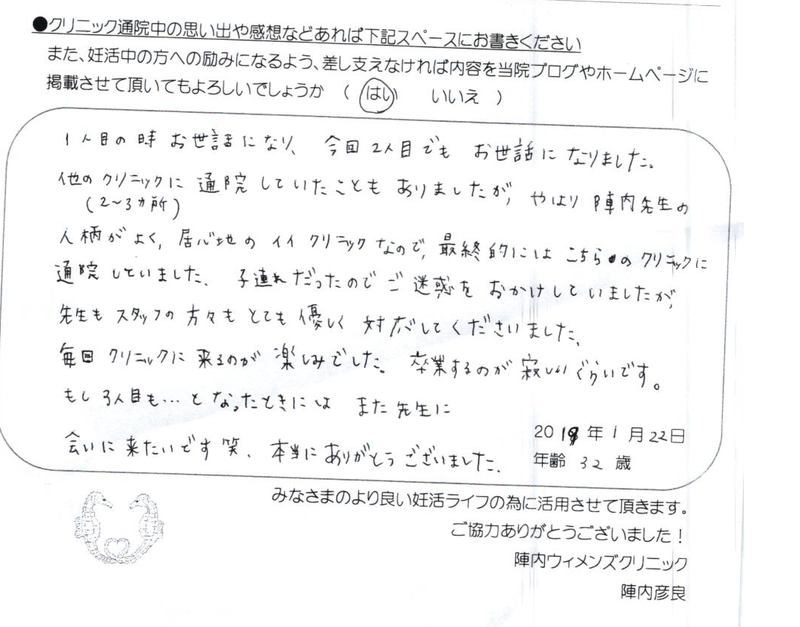 ●クリニック通院中の思い出や感想などあれば下記スペースにお書きください
また、妊活中の方への励みになるよう、差し支えなければ内容を当院ブログやホームページに
掲載させて頂いてもよろしいでしょうか （ はい いいえ ）
1人目の時お世話になり、今回2人目でもお世話になりました。
他のクリニックに通院していたこともありましたが、やはり陣内先生の
(2〜3ヵ所)
人柄がよく、居心地のイイクリニックなので、最終的にはこちらのクリニックに
通院していました。子連れだったのでご迷惑をおかけしていましたが、
先生もスタッフの方々もとても優しく対応してくださいました。
毎回クリニックに来るのが楽しみでした。卒業するのが寂しいぐらいです。
もし3人目も…となったときにはまた先生に
会いに来たいです笑、本当にありがとうございました。
2019年1月22日
年齢 32 歳
みなさまのより良い妊活ライフの為に活用させて頂きます。
ご協力ありがとうございました！
陣内ウィメンズクリニック
陣内彦良